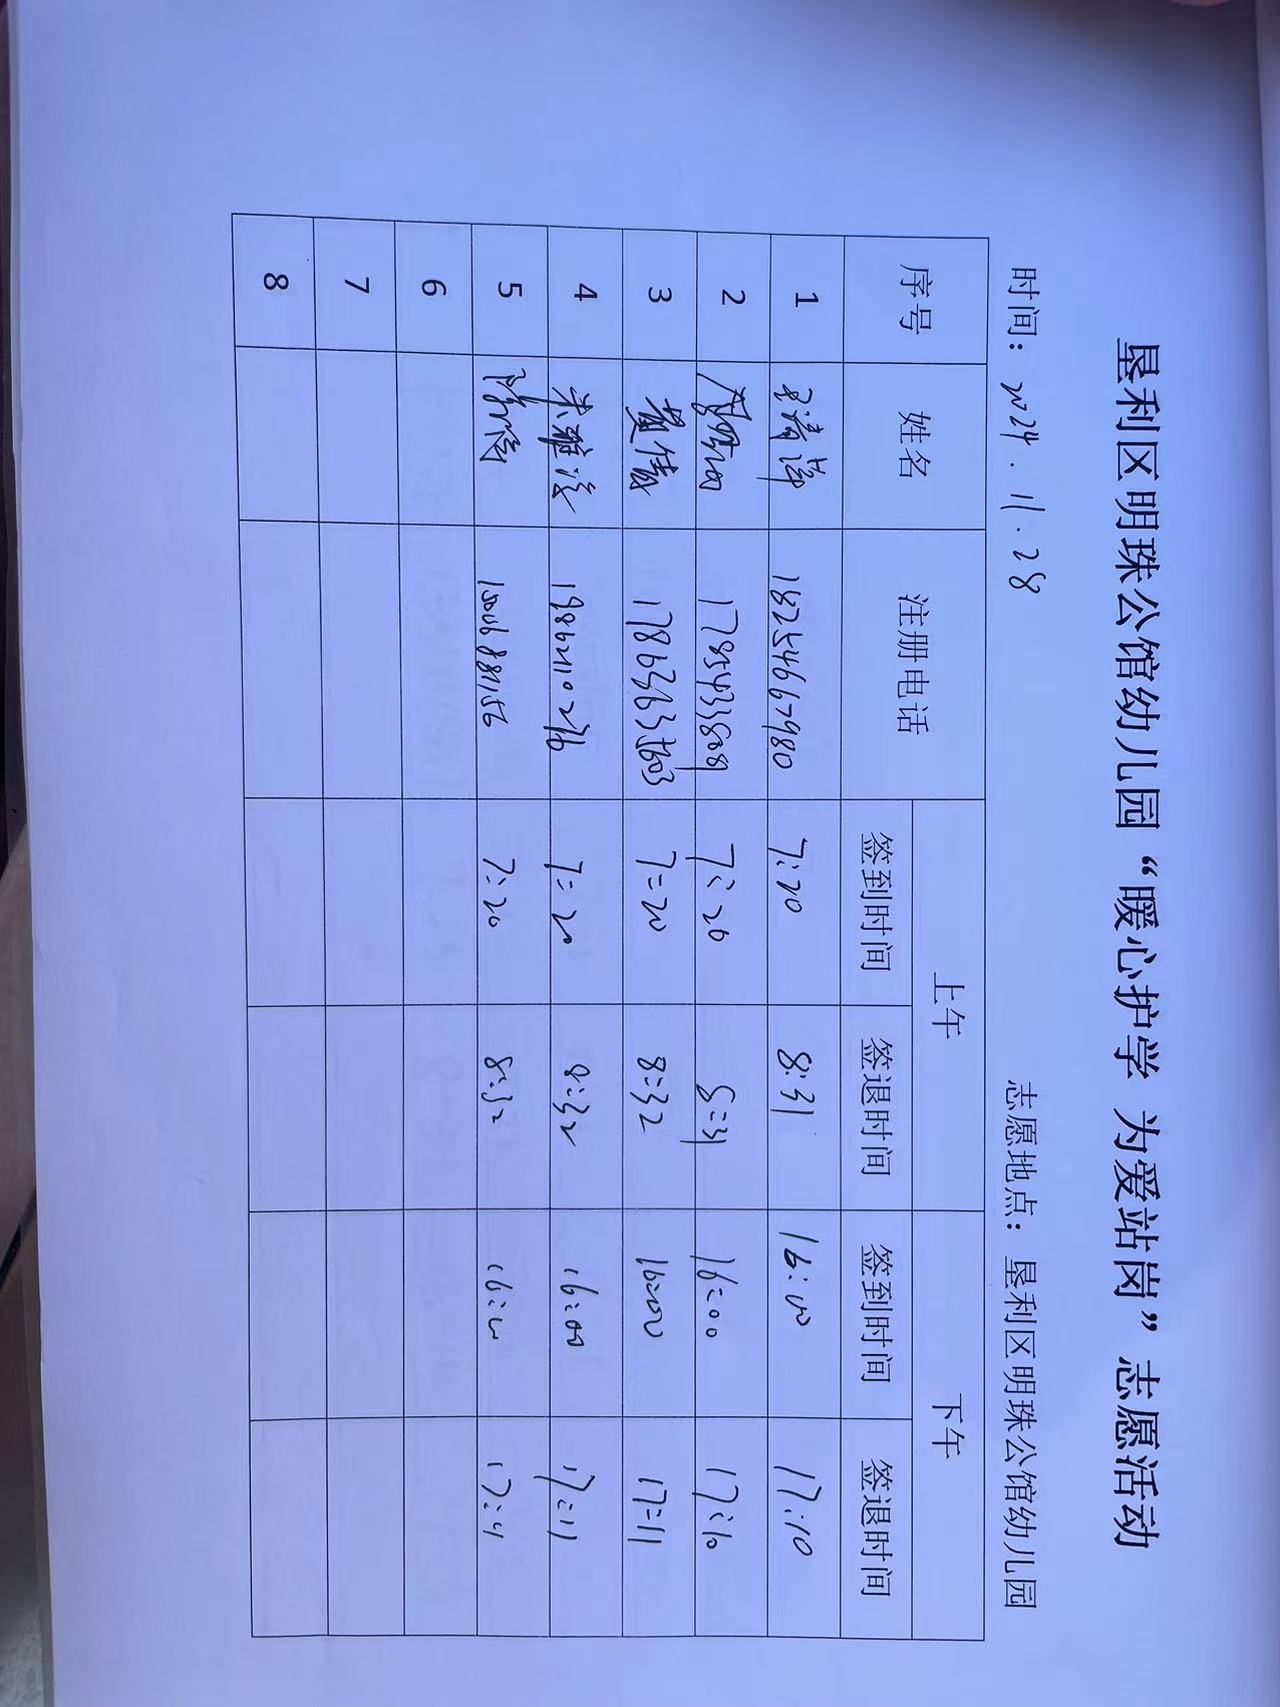 垦利区明珠公馆幼儿园“暖心护学 为爱站岗”志愿活动
时间：2024.11.28 志愿地点：垦利区明珠公馆幼儿园
序号 姓名 注册电话 上午 下午
签到时间 签退时间 签到时间 签退时间
1 18254667980 7:20 8:31 16:00 17:10
2 7:20 8:31 16:00 17:10
3 17863635603 7:20 8:32 16:00 17:11
4 19862110236 7:20 8:32 16:00 17:11
5 7:20 8:32 16:00 17:11
6
7
8